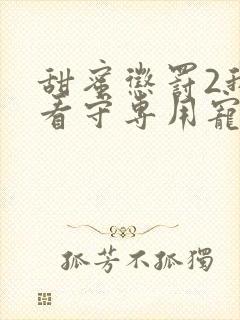 甜蜜懲罰2我
看守專用寵
孤芳不孤獨